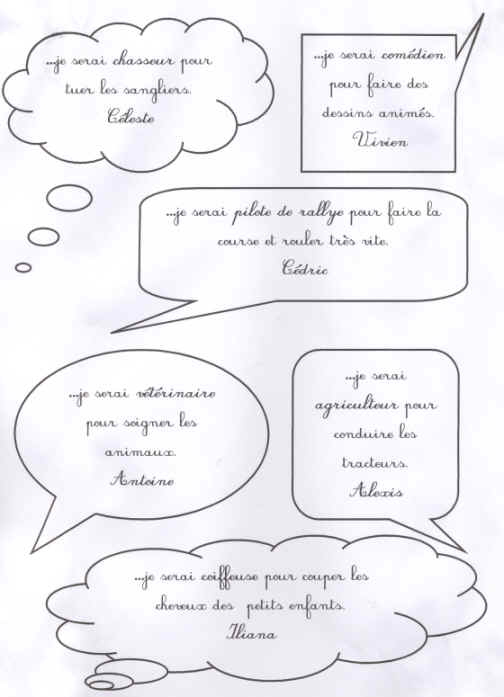 ...je serai chasseur pour
tuer les sangliers.
Céleste
...je serai comédien
pour faire des
dessins animés.
Vivien
...je serai pilote de rallye pour faire la
course et rouler très vite.
Cédric
...je serai vétérinaire
pour soigner les
animaux.
Antoine
...je serai
agriculteur pour
conduire les
tracteurs.
Alexis
...je serai coiffeuse pour couper les
cheveux des petits enfants.
Iliana